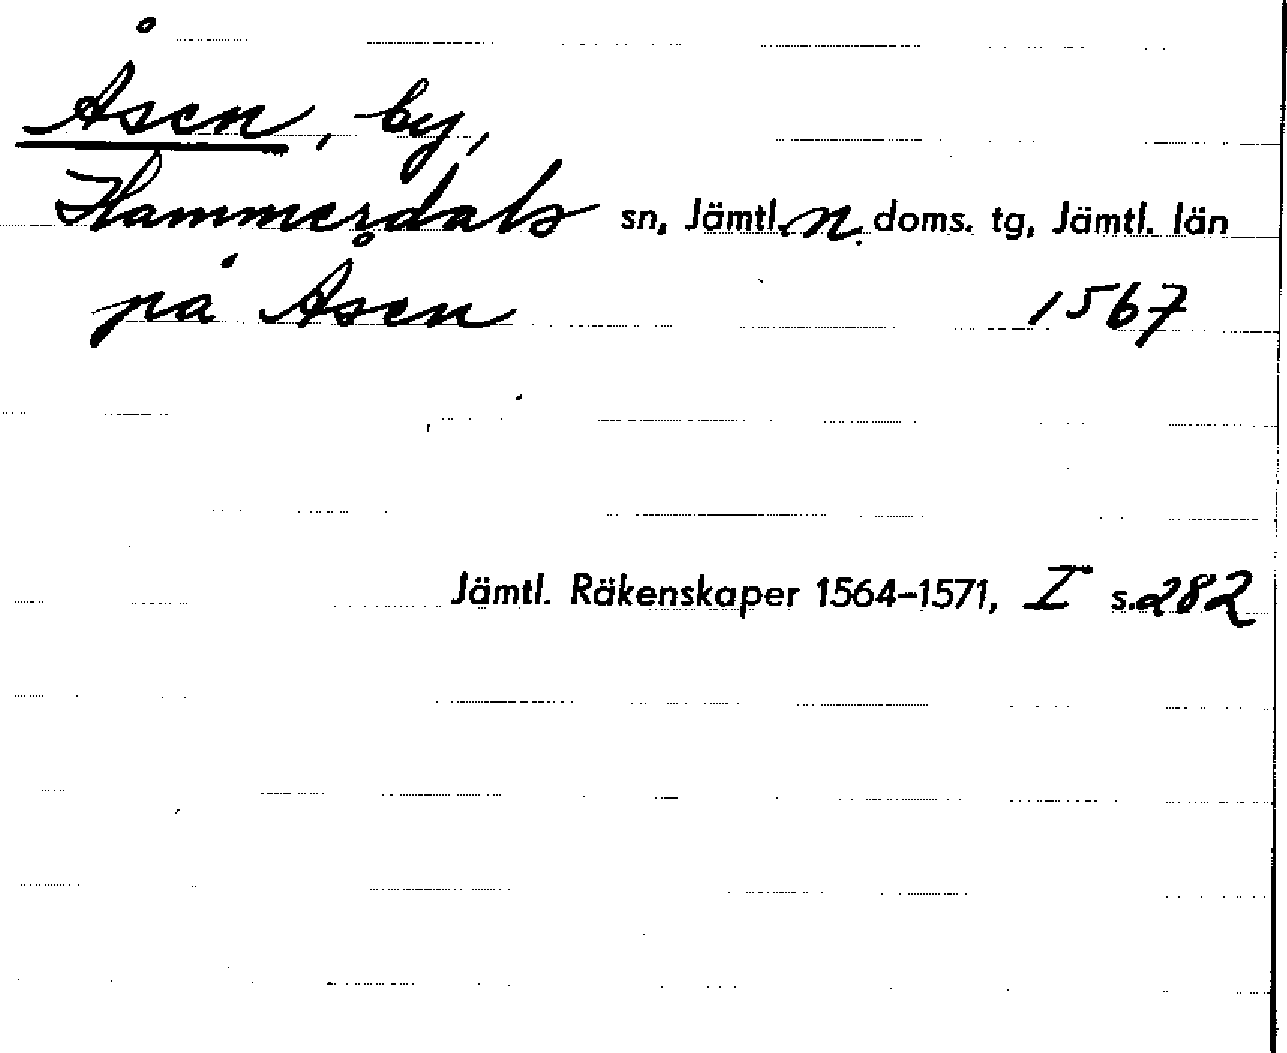 Åsen, by,
Hammerdals sn, Jämtl. n. doms. tg, Jämtl. län
på Åsen 1567
Jämtl. Räkenskaper 1564-1571, I s. 282